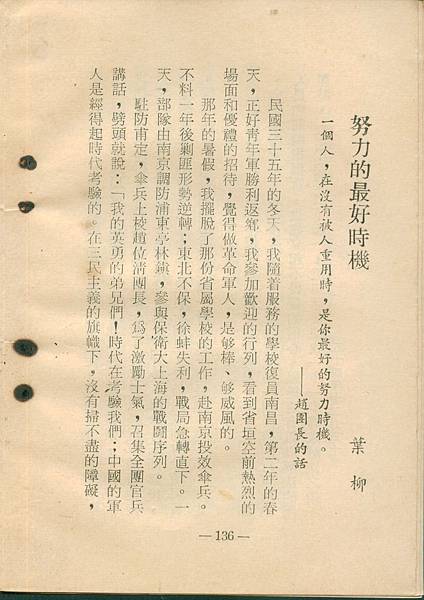 努力的最好時機
葉柳
一個人，在沒有被人重用時，是你最好的努力時機。
——趙團長的話
民國三十五年的冬天，我隨着服務的學校復員南昌，第二年的春
天，正好青年軍勝利返鄉，我參加歡迎的行列，看到省垣空前熱烈的
場面和優禮的招待，覺得做革命軍人，是够棒、够威風的。
那年的暑假，我擺脫了那份省屬學校的工作，赴南京投效傘兵。
不料一年後剿匪形勢逆轉；東北不保，徐蚌失利，戰局急轉直下。一
天，部隊由南京調防浦東亭林鎮，參與保衛大上海的戰鬪序列。
駐防甫定，傘兵上校趙位靖團長，爲了激勵士氣，召集全團官兵
講話，劈頭就說：「我的英勇的弟兄們！時代在考驗我們；中國的軍
人是經得起時代考驗的。在三民主義的旗幟下，沒有掃不盡的障礙，
— 136 —